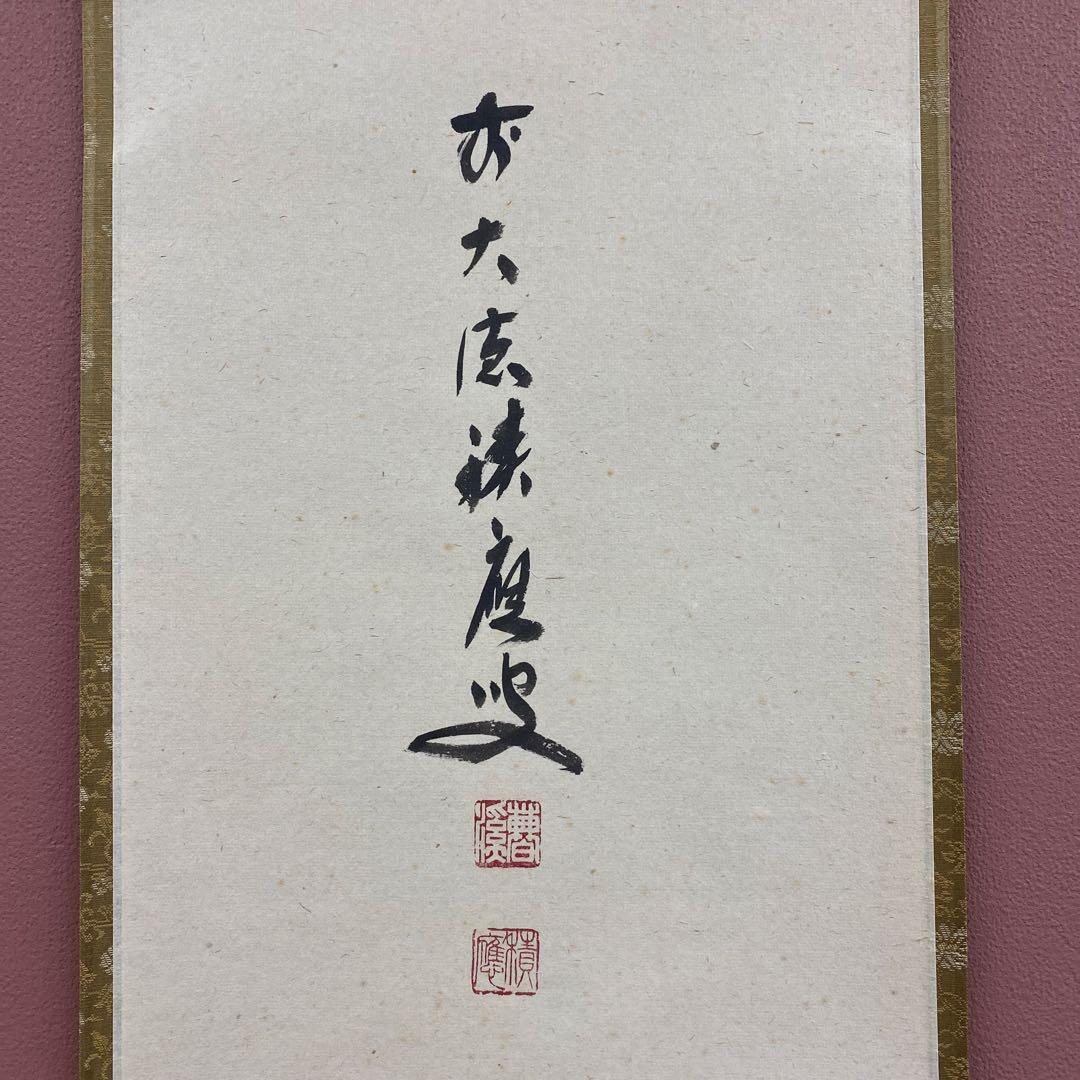 前大徳積應叟
春溪
積應